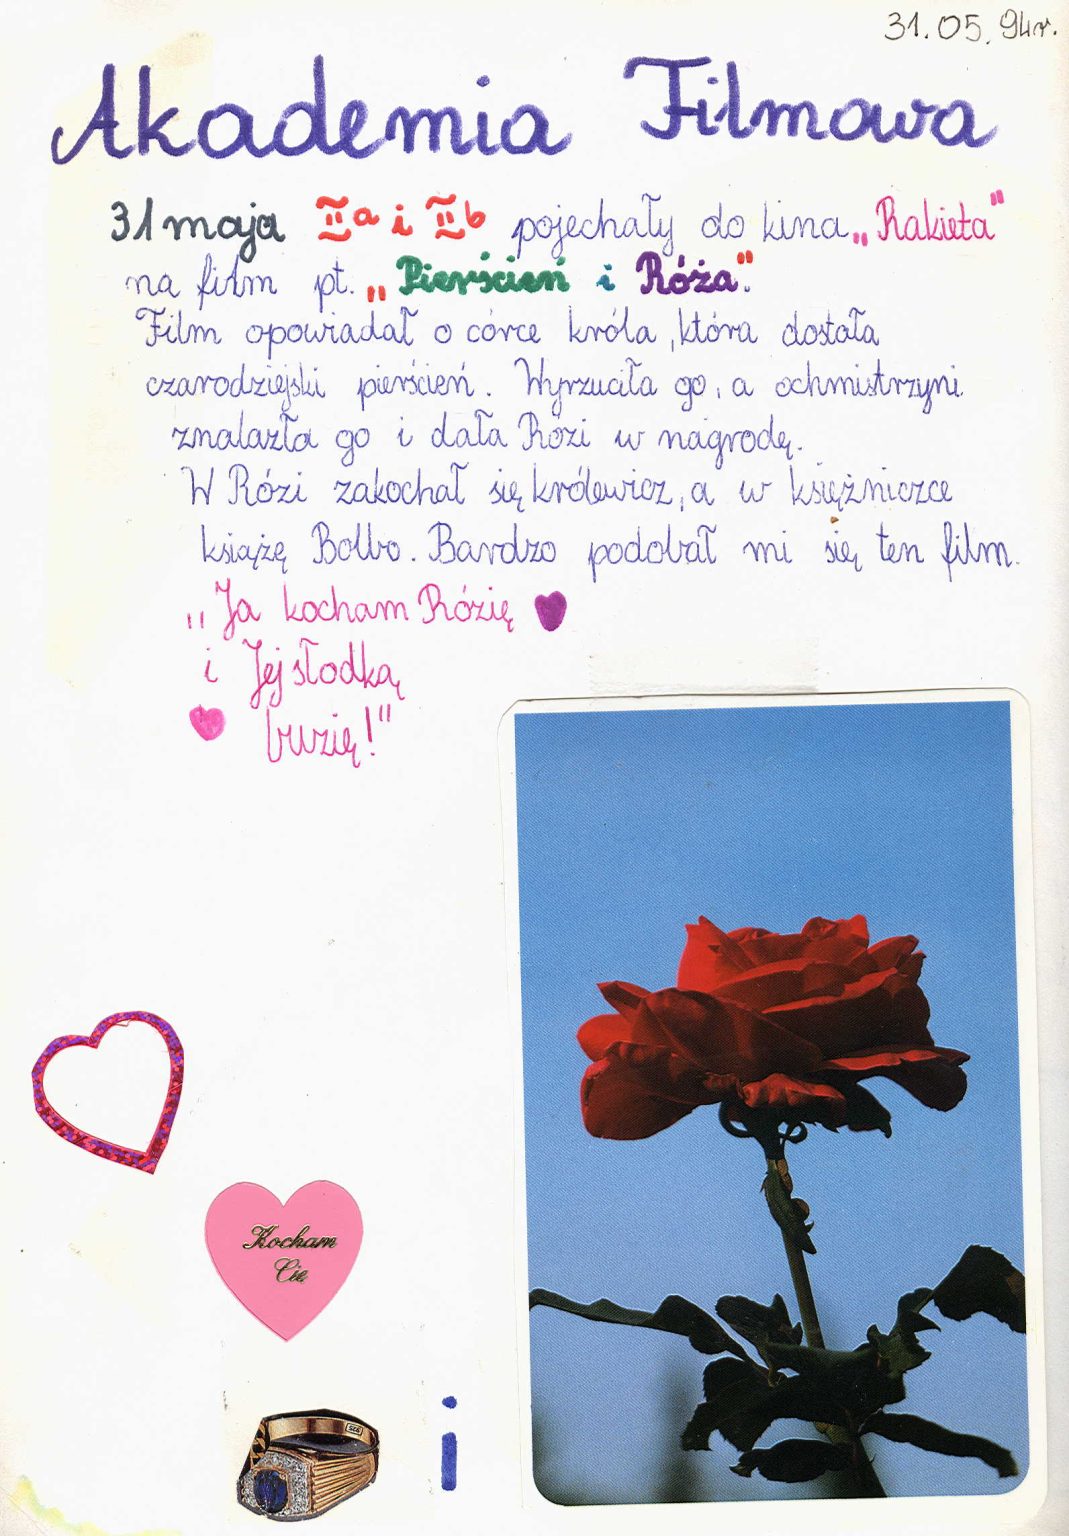 31.05.94r.
Akademia Filmowa
31 maja IIa i IIb pojechały do kina „Rakieta"
na film pt. „Pierścień i Róża".
Film opowiadał o córce króla, która dostała
czarodziejski pierścień. Wyrzuciła go, a ochmistrzyni
znalazła go i dała Rózi w nagrodę.
W Rózi zakochał się królewicz, a w księżniczce
książę Bolbo. Bardzo podobał mi się ten film.
„Ja kocham Rózię
i Jej słodką
buzię!"
Kocham
Cię
585
i